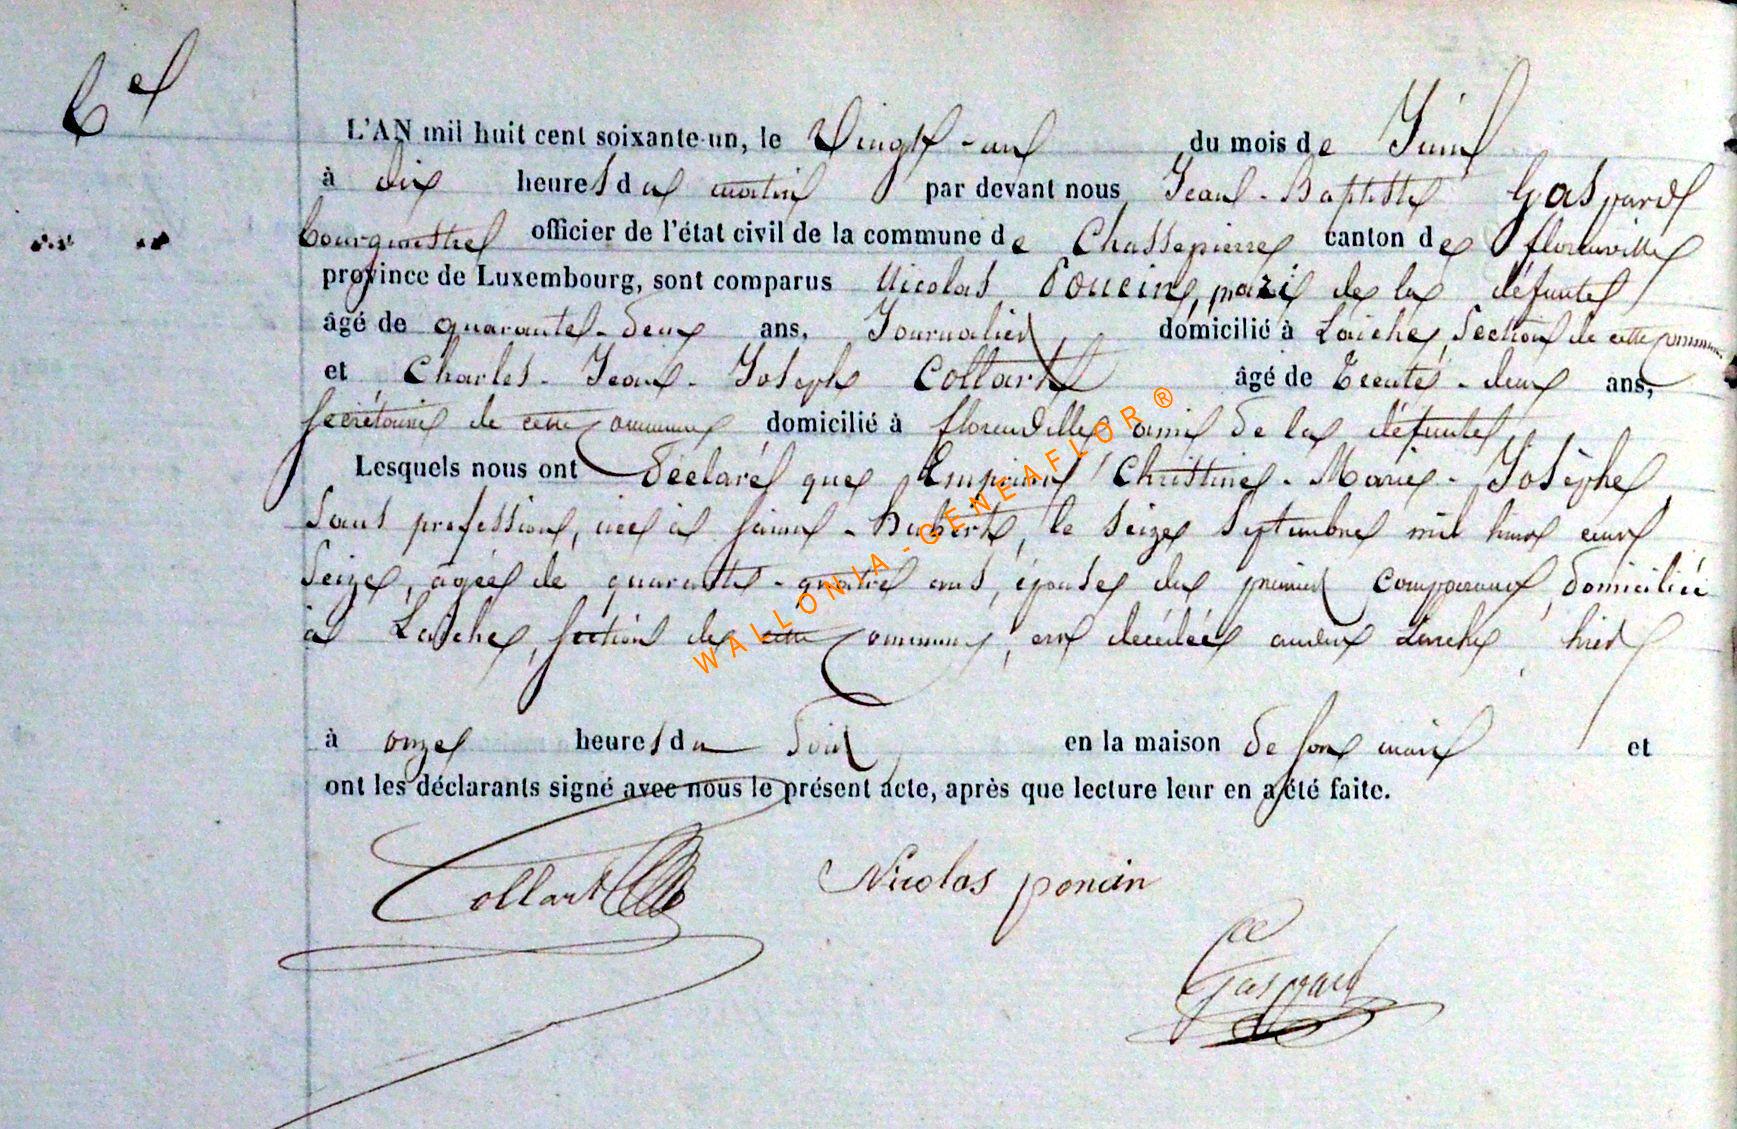 6e
L'AN mil huit cent soixante-un, le Vingt-un du mois de Juin
à dix heures du matin par devant nous Jean-Baptiste Gaspard
bourgmestre officier de l'état civil de la commune de Chassepierre canton de florenville
province de Luxembourg, sont comparus Nicolas Poncin, mari de la défunte
âgé de quarante-deux ans, Journalier domicilié à Laiche, Section de cette commune
et Charles-Jean-Joseph Collart âgé de Trente-deux ans,
secrétaire de cette commune domicilié à florenville ami de la défunte,
Lesquels nous ont déclaré que Christine-Marie-Josèphe,
Sans profession, née à Saint-Hubert, le seize septembre mil huit cent
seize, âgée de quarante-quatre ans, épouse du premier comparant, domiciliée
à Laiche, section de cette commune, est décédée audit Laiche, hier
à onze heures du soir en la maison de son mari et
ont les déclarants signé avec nous le présent acte, après que lecture leur en a été faite.
Collart Nicolas poncin
Gaspard
WALLONIA-GENEAFLOR®